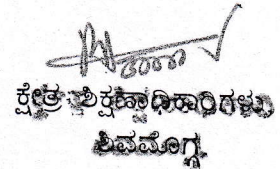 ಕ್ಷೇತ್ರ ಶಿಕ್ಷಣಾಧಿಕಾರಿಗಳು
ಶಿವಮೊಗ್ಗ